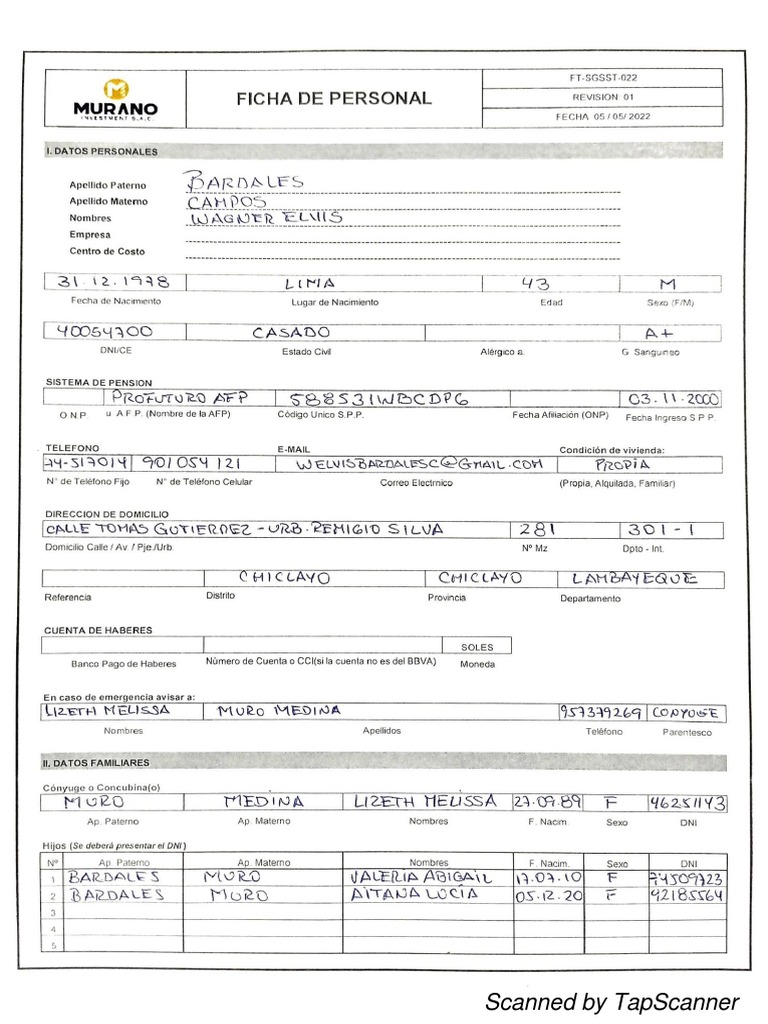 MURANO
INVESTMENT S.A.C.
FICHA DE PERSONAL
FT-SGSST-022
REVISION 01
FECHA 05 / 05 / 2022
I. DATOS PERSONALES
Apellido Paterno BARDALES
Apellido Materno CAMPOS
Nombres WAGNER ELVIS
Empresa
Centro de Costo
31.12.1978 LIMA 43 M
Fecha de Nacimiento Lugar de Nacimiento Edad Sexo (F/M)
40054700 CASADO A+
DNI/CE Estado Civil Alérgico a: G Sanguineo
SISTEMA DE PENSION
PROFUTURO AFP 588531WBCDP6 03.11.2000
O.N.P. u A.F.P. (Nombre de la AFP) Código Unico S.P.P. Fecha Afiliación (ONP) Fecha Ingreso S P P.
TELEFONO E-MAIL Condición de vivienda:
74-517014 901054121 WELVISBARDALESC@GMAIL.COM PROPIA
N° de Teléfono Fijo N° de Teléfono Celular Correo Electrnico (Propia, Alquilada, Familiar)
DIRECCION DE DOMICILIO
CALLE TOMAS GUTIERREZ - URB. REMIGIO SILVA 281 301-1
Domicilio Calle / Av. / Pje./Urb. Nº Mz Dpto - Int.
CHICLAYO CHICLAYO LAMBAYEQUE
Referencia Distrito Provincia Departamento
CUENTA DE HABERES
SOLES
Banco Pago de Haberes Número de Cuenta o CCI(si la cuenta no es del BBVA) Moneda
En caso de emergencia avisar a:
LIZETH MELISSA MURO MEDINA 957379269 CONYUGE
Nombres Apellidos Teléfono Parentesco
II. DATOS FAMILIARES
Cónyuge o Concubina(o)
MURO MEDINA LIZETH MELISSA 27.09.89 F 46251143
Ap. Paterno Ap. Materno Nombres F. Nacim. Sexo DNI
Hijos (Se deberá presentar el DNI)
Nº Ap. Paterno Ap. Materno Nombres F. Nacim. Sexo DNI
1 BARDALES MURO VALERIA ABIGAIL 17.07.10 F 74509723
2 BARDALES MURO AITANA LUCÍA 05.12.20 F 92185564
3
4
5
Scanned by TapScanner